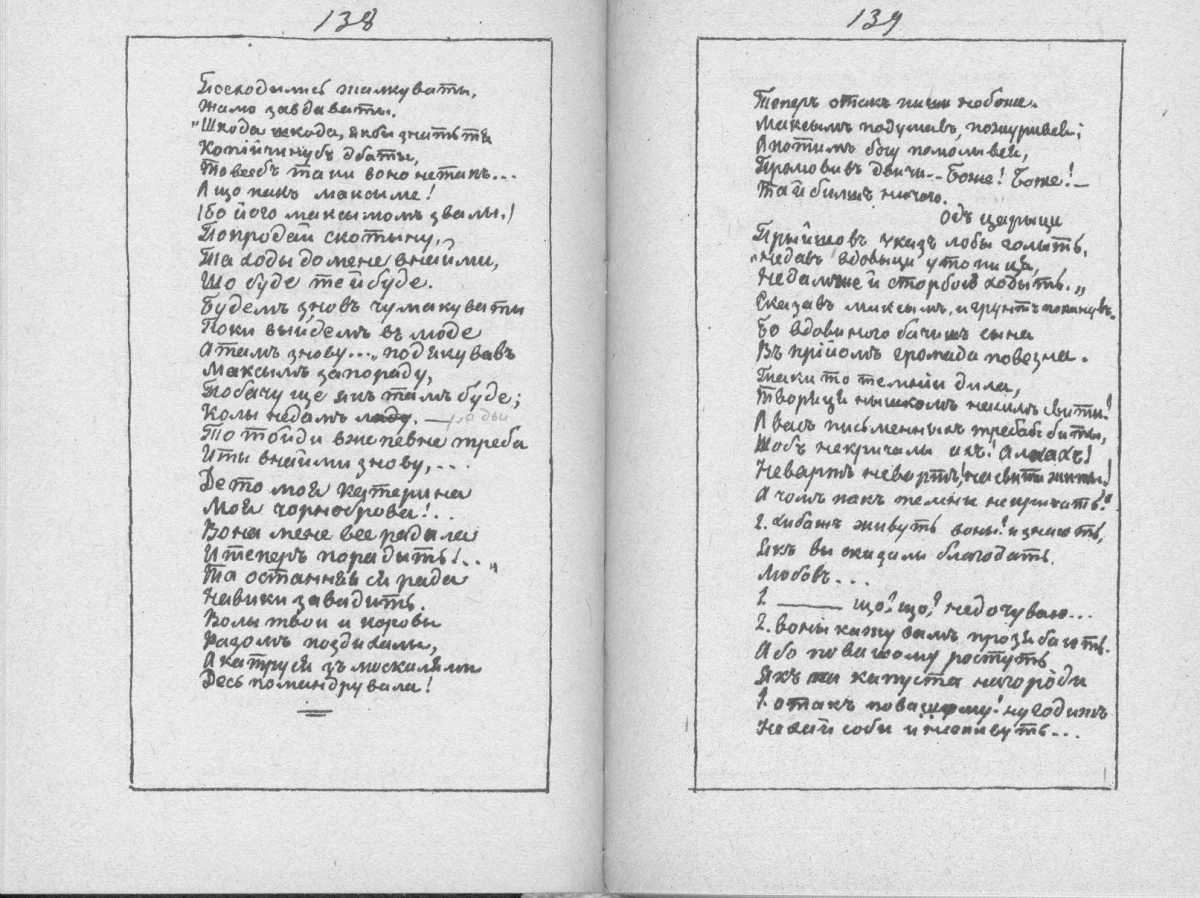 138
Посходились жалкувати,
Жалю завдавать.
"Шкода шкода, якбы знатьтя
Копійчинубъ дбаты,
Товсебъ таки воно нетакъ...
А що пакъ максиме!
(бо його максымомъ звалы.)
Попродай скотыну,
Та ходы до мене внайми,
Що буде тей буде.
Будемъ зновъ чумакуваты
Поки выйдемъ въ люде
А тамъ знову..." подякувавъ
Максымъ запораду,
Побачу ще якъ тамъ буде;
Колы недамъ ладу. — ради
То тойди вже певне треба
Йты внайми знову,...
Де то моя катерина
Моя чорноброва!..
Вона мене все радила
И теперъ порадыть!.."
Та остання ся рада
Навики завадить.
Волы твои и коровы
Разомъ поздихали,
А катруся зъ москалями
Десь помандрувала!
139
Теперъ отакъ пиши небоже.
Максымъ подумавъ, пожурився;
А потимъ богу помолывся,
Промовивъ двичи-- Боже! Боже!—
Та й билшъ ничого.
Одъ царыци
Прыйшовъ указъ лобы голыть,
"Недавъ вдовыци утопиця,
Недамъже й сторбою ходыть."
Сказавъ максымъ, и грунтъ покинувъ.
Бо вдовиного бачишъ сына
Въ прійомъ громада повезла.
Такито темнии дила,
Творяця нышкомъ на симъ свити!
А васъ письменныхъ требабъ бити,
Щобъ некричали ахъ! аллахъ!
Невартъ невартъ! на свити жить!
А чомъ пакъ темни некричать!
2. Хибажъ живуть воны! и знають,
Якъ вы сказали благодать.
Любовъ...
1. ——— що? що? недочуваю...
2. воны кажу вамъ прозябають.
Або по вашому ростуть
Якъ та капуста нагороди
1. отакъ повашому! ну годижъ
Нехай соби и неживуть...